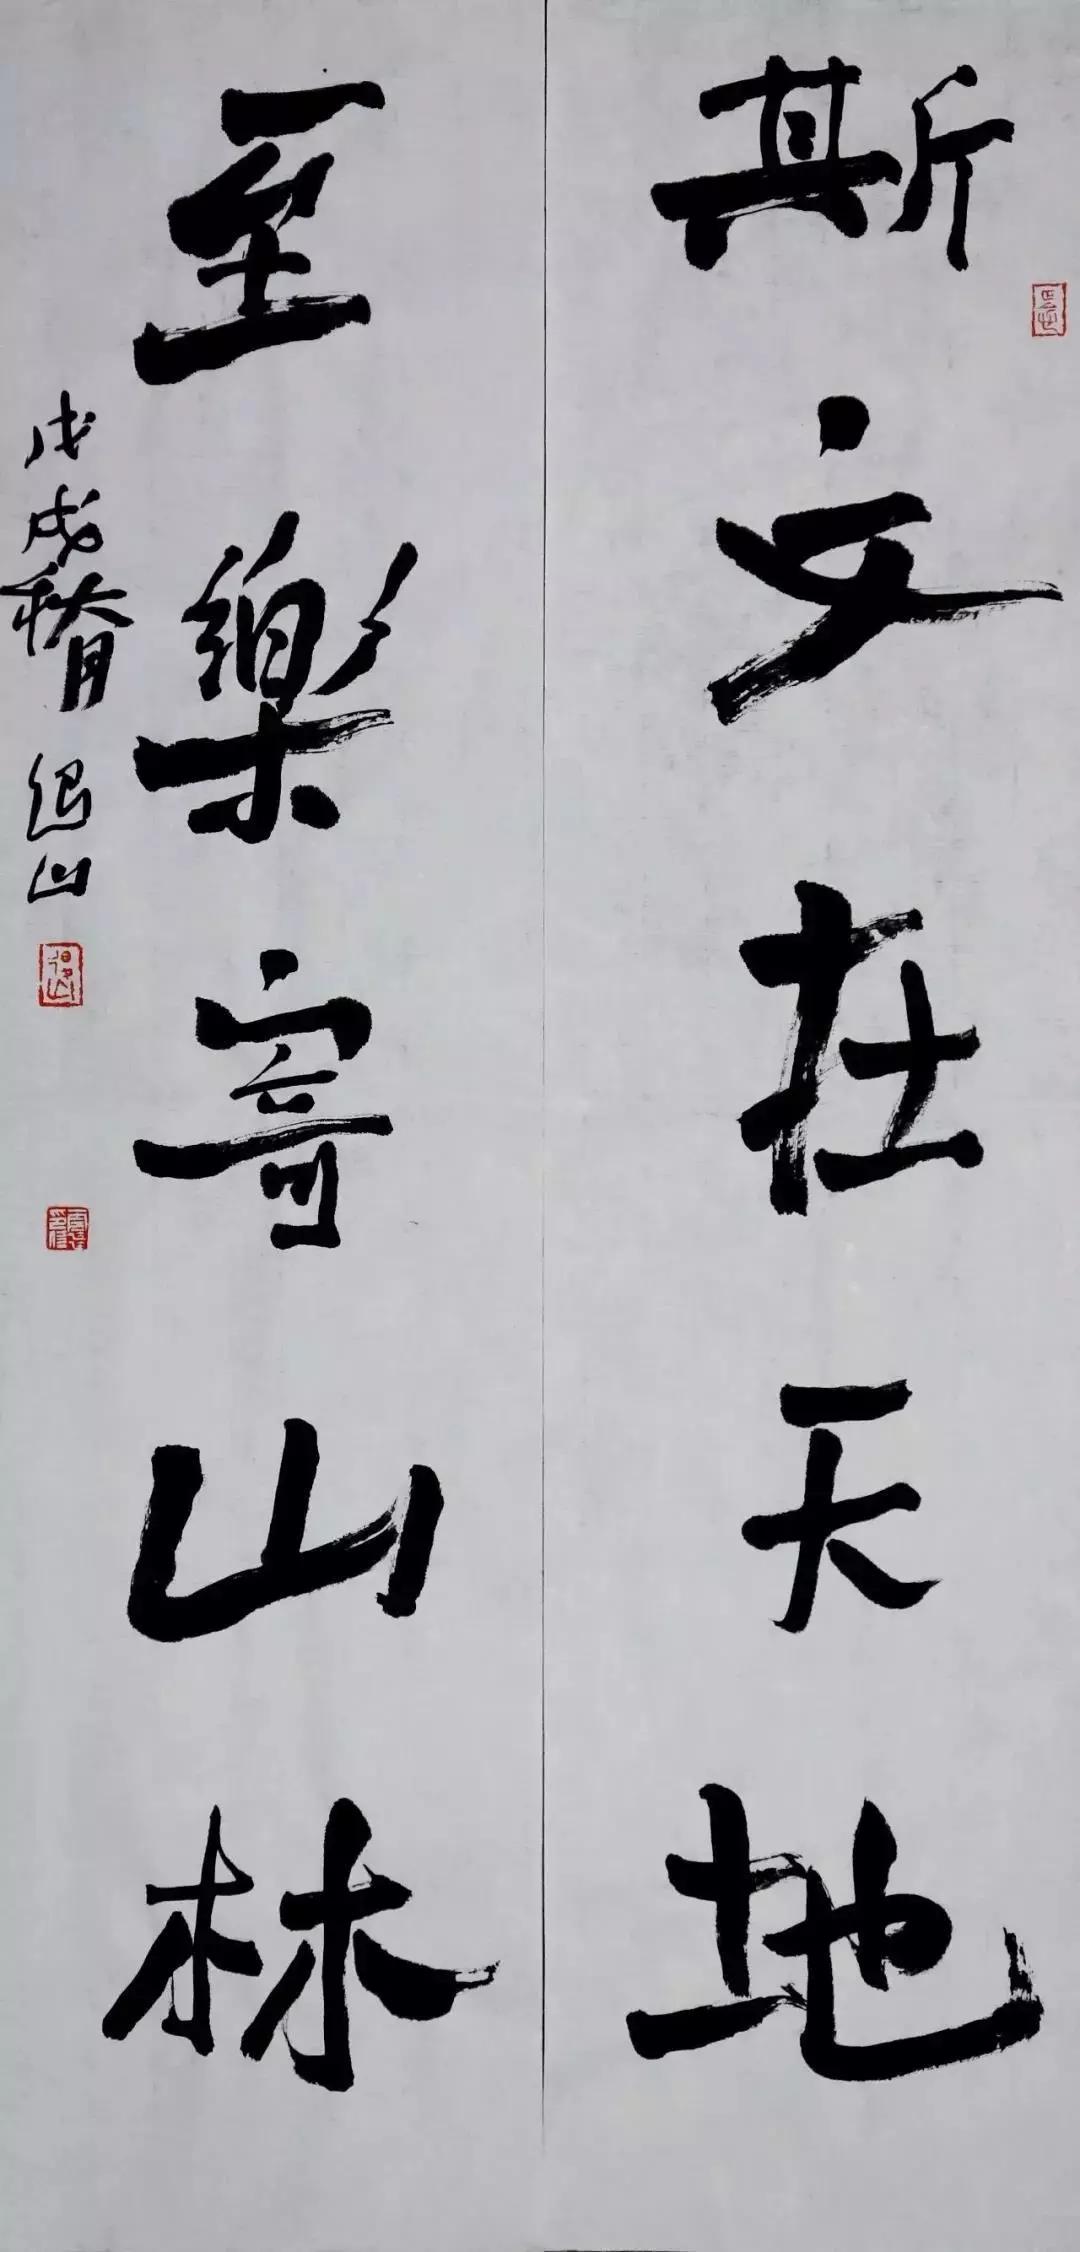 斯文在天地
至樂寄山林
戊戌秋月